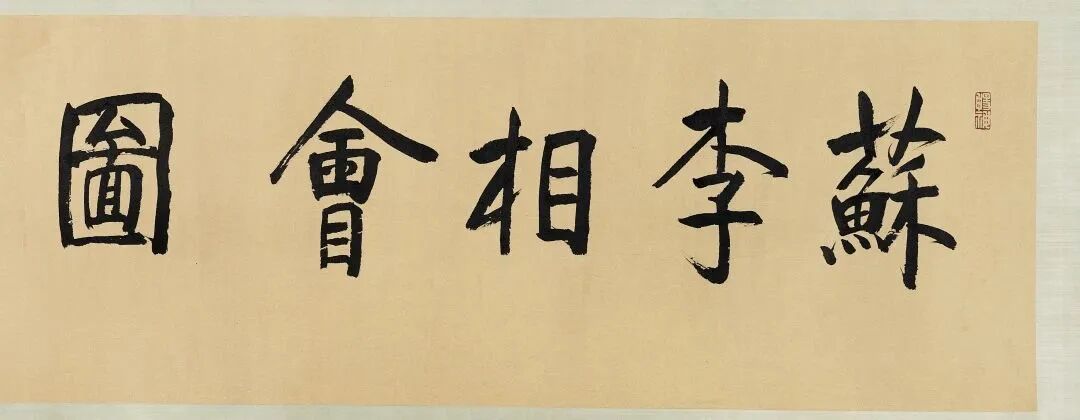 蘇李相會圖